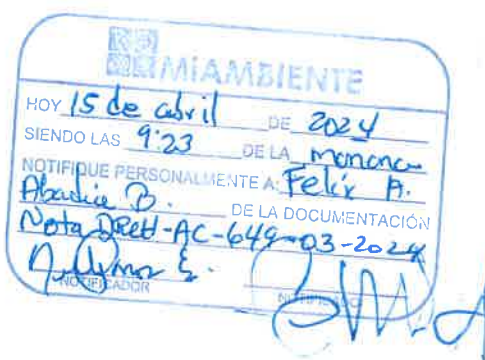 MiAMBIENTE
HOY 15 de abril DE 2024
SIENDO LAS 9:23 DE LA manana
NOTIFIQUE PERSONALMENTE A: Felix A.
Abadia B. DE LA DOCUMENTACIÓN
Nota DREH-AC-649-03-2024
NOTIFICADOR NOTIFICADO